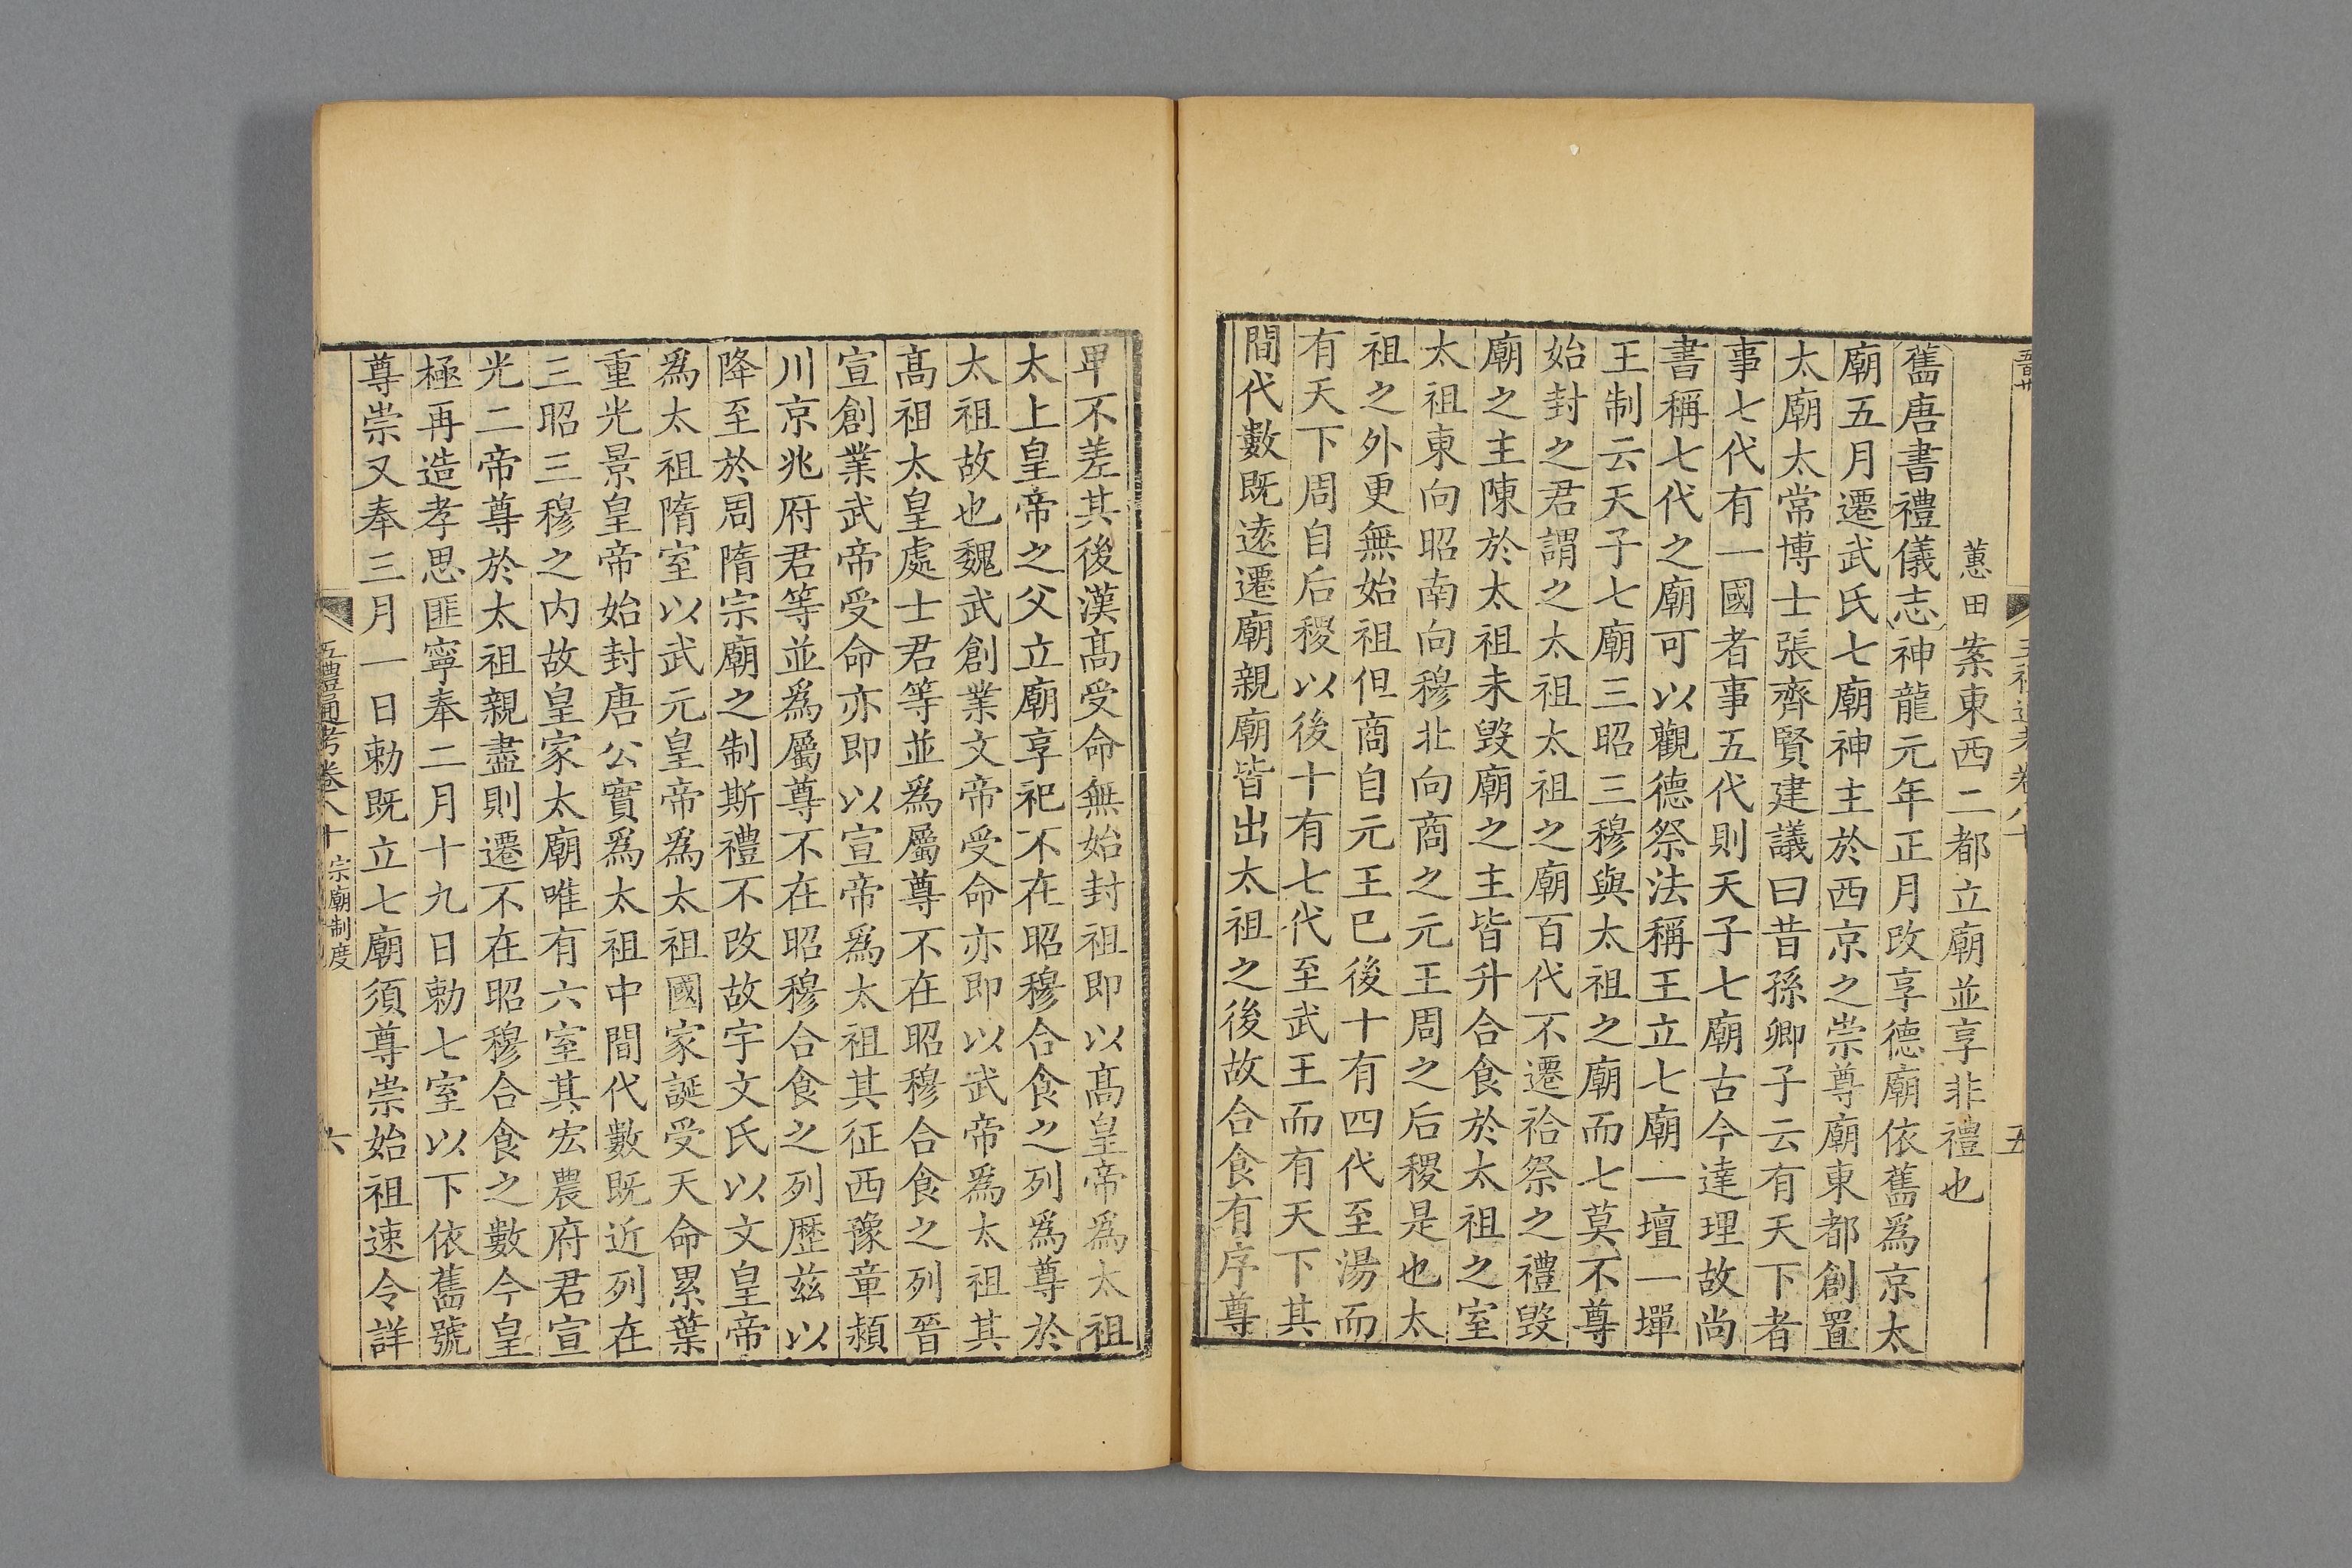 蕙田案東西二都立廟並享非禮也
舊唐書禮儀志神龍元年正月改享德廟依舊爲京太
廟五月遷武氏七廟神主於西京之崇尊廟東都創置
太廟太常博士張齊賢建議曰昔孫卿子云有天下者
事七代有一國者事五代則天子七廟古今達理故尚
書稱七代之廟可以觀德祭法稱王立七廟一壇一墠
王制云天子七廟三昭三穆與太祖之廟而七莫不尊
始封之君謂之太祖太祖之廟百代不遷祫祭之禮毀
廟之主陳於太祖未毀廟之主皆升合食於太祖之室
太祖東向昭南向穆北向商之元王周之后稷是也太
祖之外更無始祖但商自元王已後十有四代至湯而
有天下周自后稷以後十有七代至武王而有天下其
間代數既遠遷廟親廟皆出太祖之後故合食有序尊
卑不差其後漢髙受命無始封祖即以髙皇帝爲太祖
太上皇帝之父立廟享祀不在昭穆合食之列爲尊於
太祖故也魏武創業文帝受命亦即以武帝爲太祖其
髙祖太皇處士君等並爲屬尊不在昭穆合食之列晉
宣創業武帝受命亦即以宣帝爲太祖其征西豫章頴
川京兆府君等並爲屬尊不在昭穆合食之列歴兹以
降至於周隋宗廟之制斯禮不改故宇文氏以文皇帝
爲太祖隋室以武元皇帝爲太祖國家誕受天命累葉
重光景皇帝始封唐公實爲太祖中間代數既近列在
三昭三穆之内故皇家太廟唯有六室其宏農府君宣
光二帝尊於太祖親盡則遷不在昭穆合食之數今皇
極再造孝思匪寧奉二月十九日勅七室以下依舊號
尊崇又奉三月一日勅既立七廟須尊崇始祖速令詳
五禮通考卷八十 宗廟制度 六